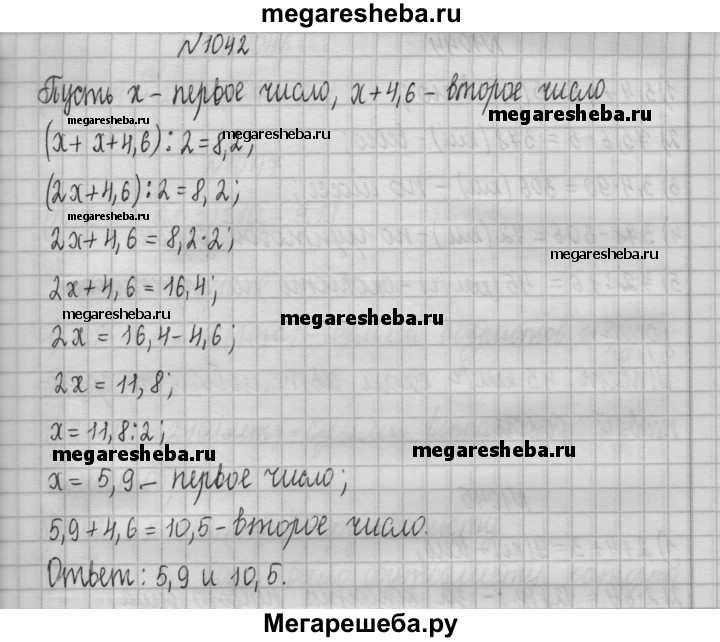 megaresheba.ru
№1042
Пусть x - первое число, x+4,6 - второе число
megaresheba.ru
megaresheba.ru
(x+x+4,6):2=8,2;
megaresheba.ru
(2x+4,6):2=8,2;
megaresheba.ru
2x+4,6=8,2·2;
megaresheba.ru
2x+4,6=16,4;
megaresheba.ru
megaresheba.ru
2x=16,4-4,6;
2x=11,8;
x=11,8:2;
megaresheba.ru
megaresheba.ru
x=5,9 - первое число;
5,9+4,6=10,5 - второе число.
Ответ: 5,9 и 10,5.
Мегарешеба.ру